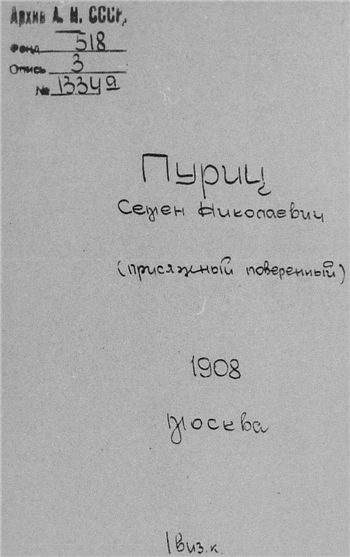 Архив А. Н. СССР,
Фонд 518
Опись 3
№ 1334а
Пуриц
Семен Николаевич
(присяжный поверенный)
1908
Москва
1 виз.к.